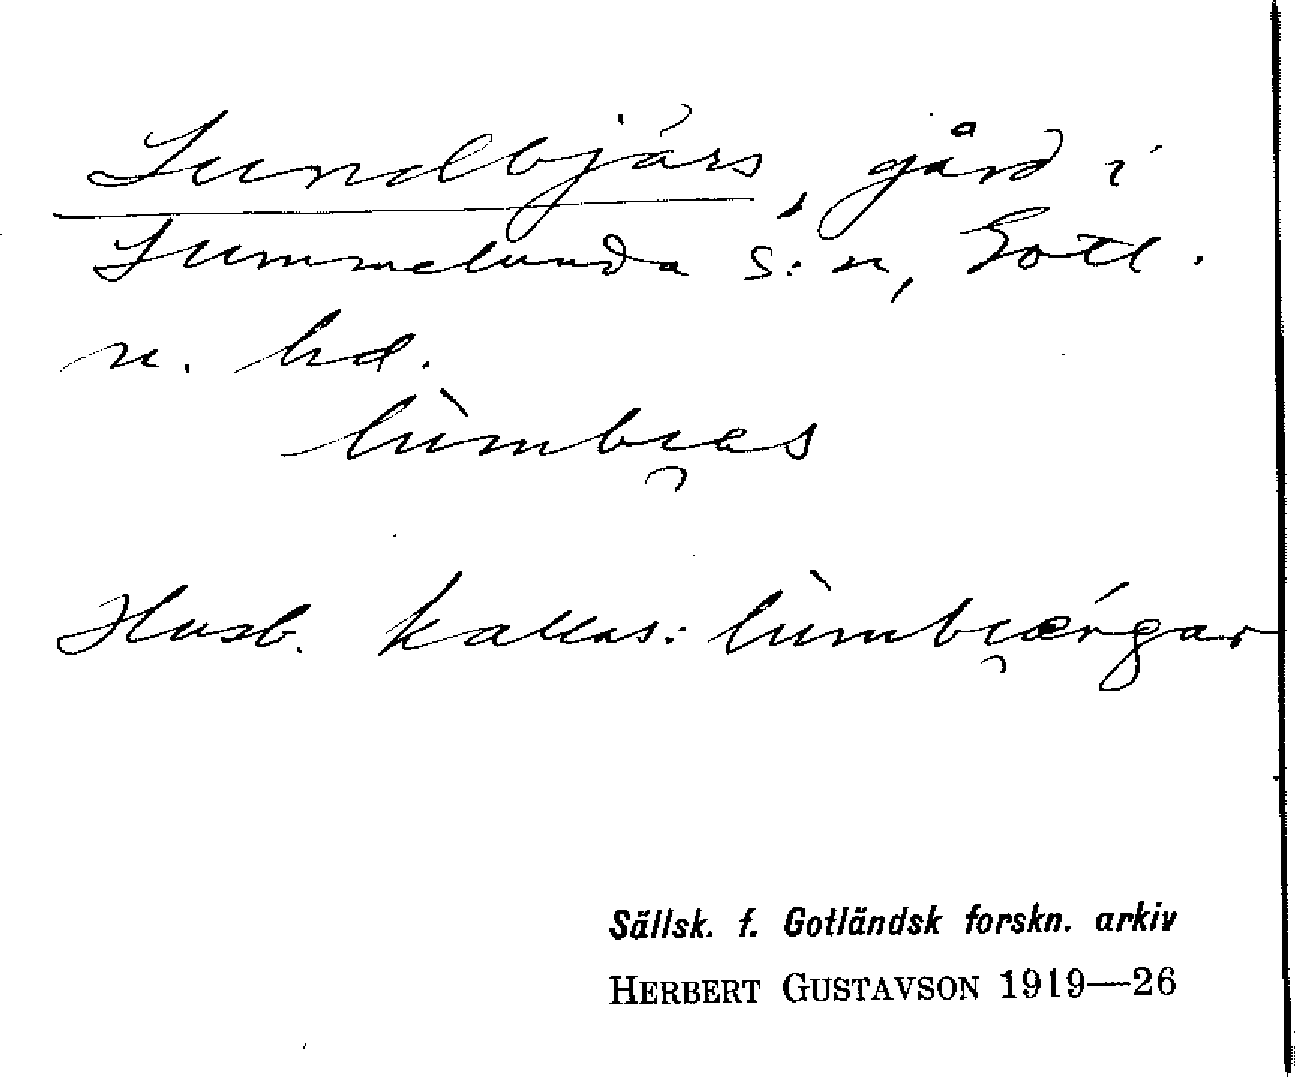 Lundbjärs, gård i
Lummelunda s:n, Gotl.
n. hd.
lùmbi̯es
Husb. kallas: lùmbi̯ærgar
Sällsk. f. Gotländsk forskn. arkiv
HERBERT GUSTAVSON 1919—26